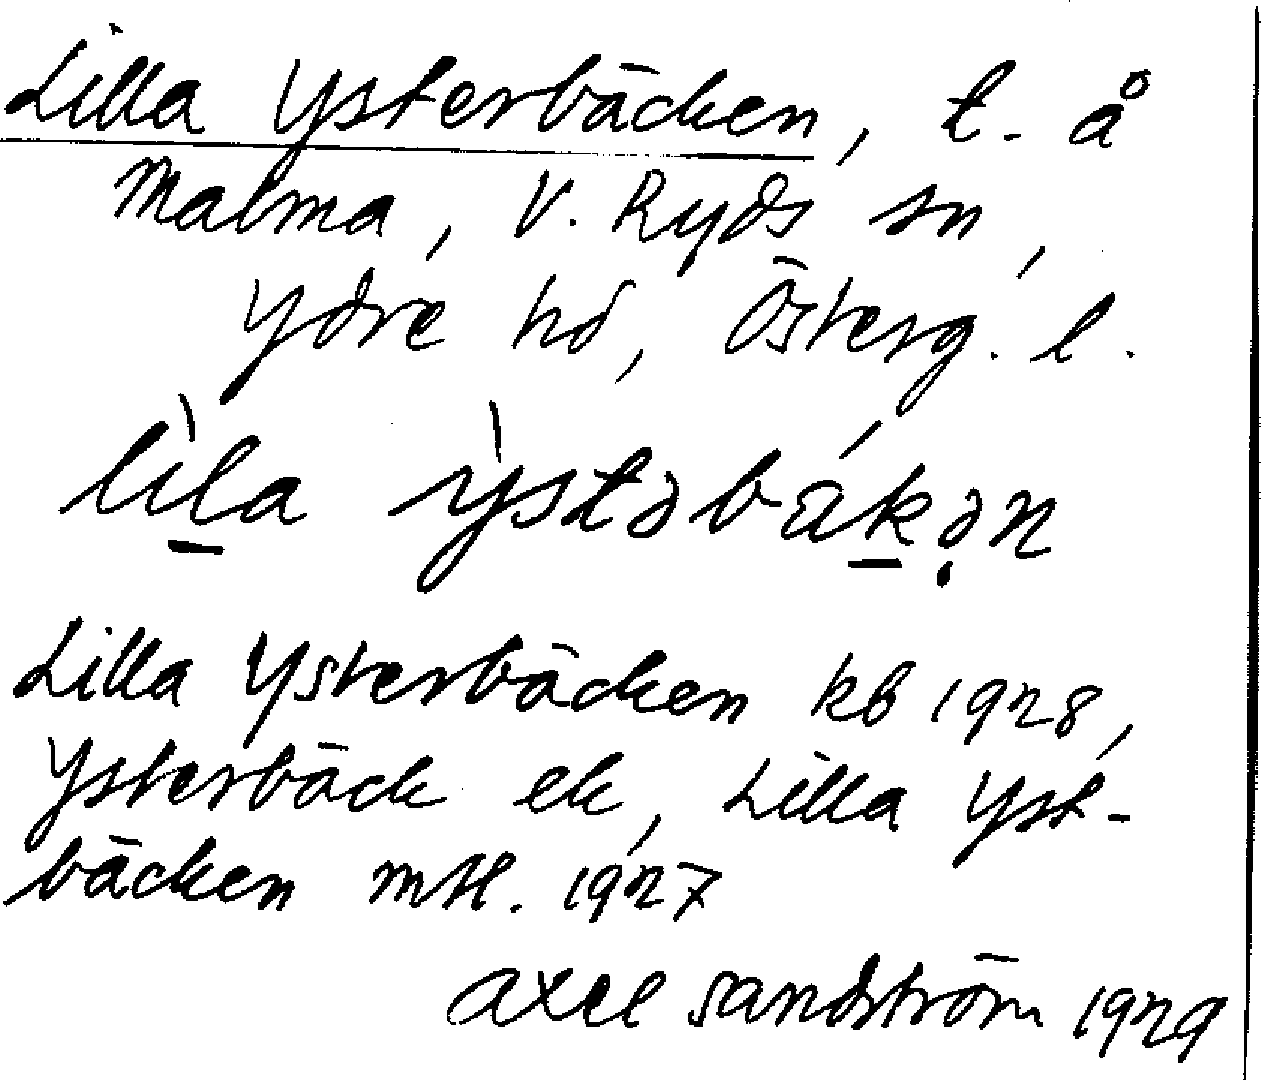 Lilla Ysterbäcken, t. å
Malma, V. Ryds sn,
Ydre hd, Österg. l.
lìla ỳstəbákə̣n
Lilla Ysterbäcken kb 1928,
Ysterbäck ek, Lilla Yst-
bäcken mtl. 1927
Axel Sandström 1929